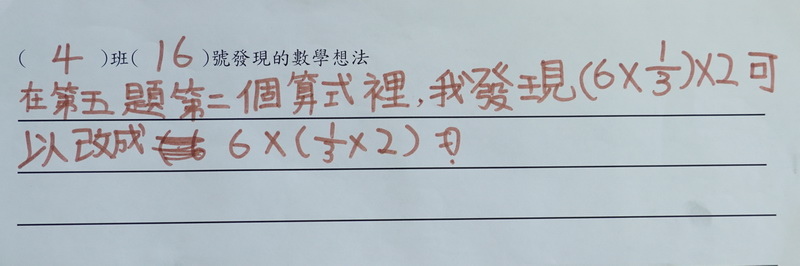 ( 4 )班( 16 )號發現的數學想法
在第五題第二個算式裡,我發現(6×1/3)×2可
以改成 6×(1/3×2)